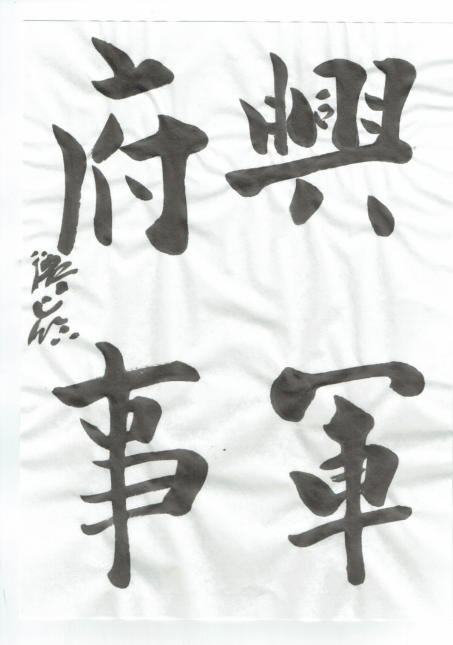 興軍
府事